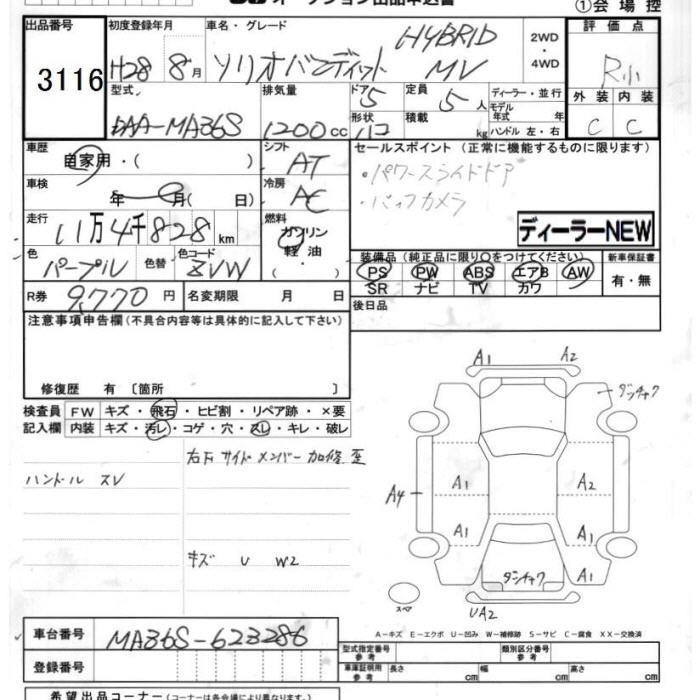 ①会場控
出品番号
3116
初度登録年月
H28 8月
車名・グレード
ソリオバンディット
HYBRID
MV
2WD
・
4WD
評価点
R小
型式
DAA-MA36S
排気量
1200cc
ドア
5
形状
ハコ
定員
5人
積載
kg
ディーラー・並行
モデル
年式 年
ハンドル 左・右
外装
内装
C
C
車歴
自家用・( )
シフト
AT
車検
年 月( 日)
冷房
AC
走行
11万4千828km
燃料
ガソリン
軽油
( )
色
パープル
色替
色コード
ZVW
R券
9,770円
名変期限 月 日
セールスポイント (正常に機能するものに限ります)
・パワースライドドア
・バックカメラ
ディーラーNEW
装備品(純正品に限り○をつけてください)
PS PW ABS エアB AW
SR ナビ TV カワ
新車保証書
有・無
後日品
注意事項申告欄(不具合内容等は具体的に記入して下さい)
修復歴 有 〔箇所 〕
検査員
記入欄
FW キズ・飛石・ヒビ割・リペア跡・×要
内装 キズ・汚レ・コゲ・穴・スレ・キレ・破レ
右下サイドメンバー加修歪
ハンドルスV
キズ U W2
A1
A2
ダンチャク
A4
A1
A2
A1
A1
ダンチャク
A1
UA2
スペア
A-キズ E-エクボ U-凹み W-補修跡 S-サビ C-腐食 XX-交換済
車台番号
MA36S-623286
登録番号
型式指定番号
参考
類別区分番号
参考
車庫証明用
参考
長さ cm
幅 cm
高さ cm
希望出品コーナー(コーナーは各会場により異なります。)